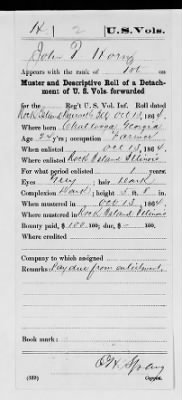 H 2 U.S. Vols.
John T. Horn
Appears with the rank of Pvt. on
Muster and Descriptive Roll of a Detach-
ment of U. S. Vols. forwarded
for the Reg't U. S. Vol. Inf. Roll dated
Rock Island Barracks Ill Oct 13, 1864.
Where born Chattooga Georgia
Age 24 y'rs; occupation Farmer
When enlisted Oct 13, 1864.
Where enlisted Rock Island Illinois
For what period enlisted 1 years.
Eyes Grey; hair Dark
Complexion Dark; height 5 ft. 8 in.
When mustered in Oct 13, 1864.
Where mustered in Rock Island Illinois
Bounty paid $ 100; due $
Where credited
Company to which assigned
Remarks: Pay due from enlistment.
Book mark:
(339) Copyist.